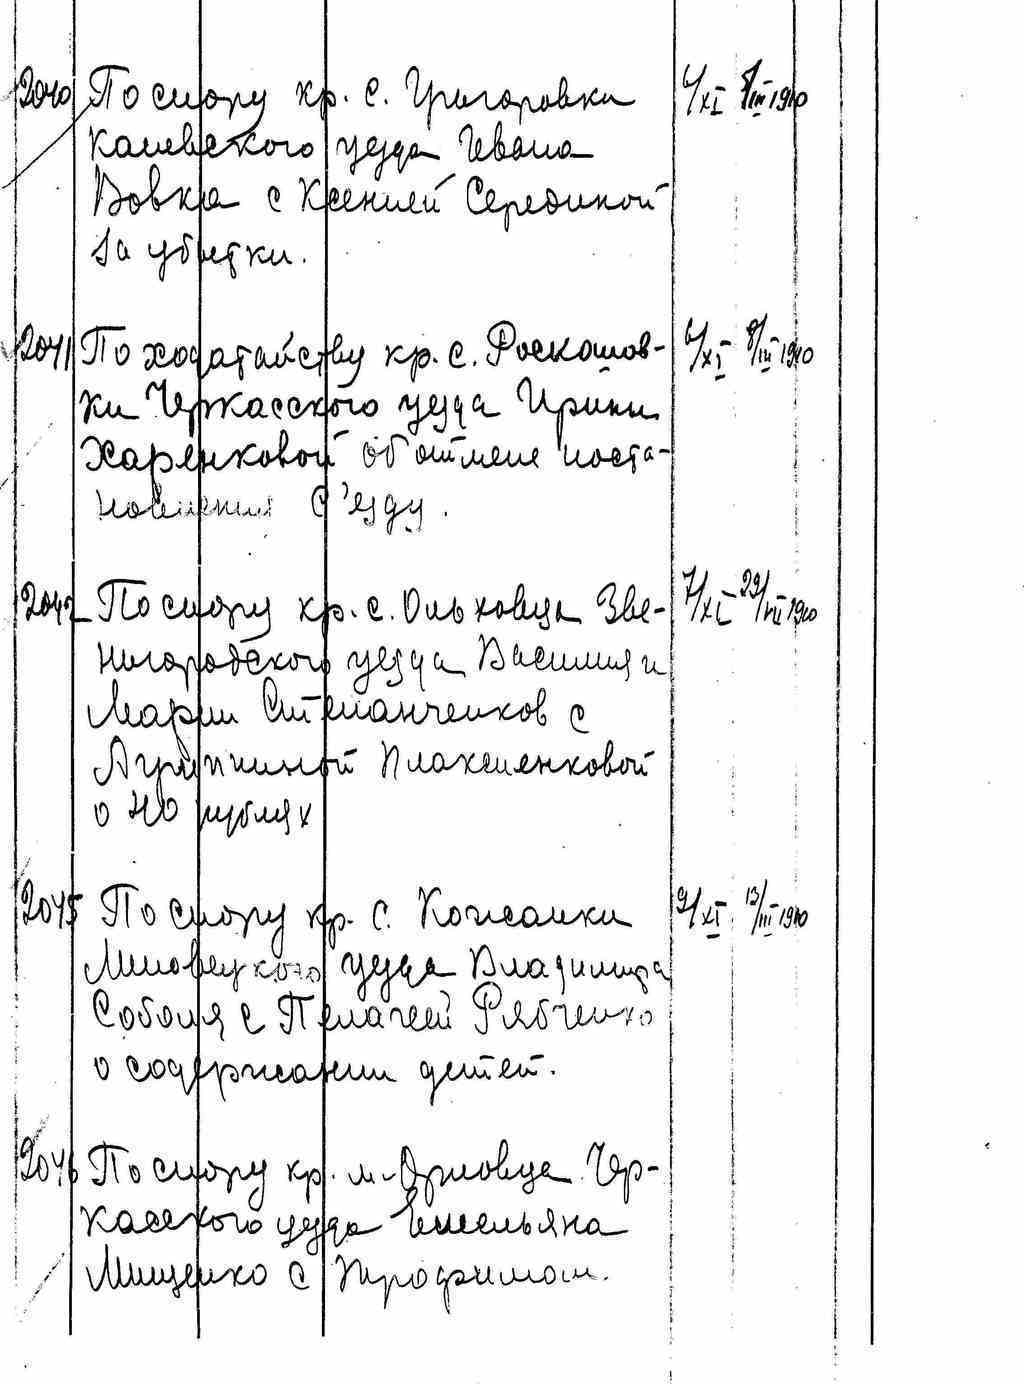 2040 По спору кр. с. Григоровки 6/XI 8/III 1910
Каневского уезда Ивана
Вовка с Ксенией Серединой
за убытки.
2041 По ходатайству кр. с. Роскошов- 6/XI 8/III 1910
ки Черкасского уезда Ирины
Харенковой об отмене поста-
новления С'езду.
2042 По спору кр. с. Ольховца Зве- 7/XI 29/VII 1910
нигородского уезда Василия и
Марии Степанченков с
Агрипиной Плаксиенковой
о 40 рублях
2045 По спору кр. с. Кожанки 9/XI 13/III 1910
уезда Владимира
Соболя с Пелагеей Рябченко
о содержании детей.
2046 По спору кр. м. Орловца Чер-
касского уезда Емельяна
Мищенко с Трофимом.